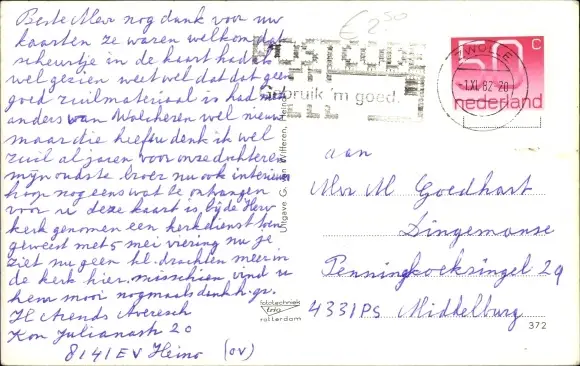 Beste Mevr nog dank voor uw
kaarten ze waren welkom dat
scheurtje in de kaart had ik
wel gezien weet wel dat dat geen
goed ruilmateriaal is had niet
anders van Walcheren wel nieuw
maar die heeft u denk ik wel
ruil al jaren voor onze dochter en
mijn oudste broer nu ook interieur
hoop nog eens wat te ontvangen
voor u deze kaart is bij de Herv
kerk genomen een kerkdienst toen
geweest met 5 mei viering nu je
ziet nu geen kl. drachten meer in
de kerk hier. misschien vind u
hem mooi nogmaals dank h. gr.
H Arends Averesch
Kon Julianastr 20
8141 EV Heino (OV)
€ 2.50
POSTKODE
Gebruik 'm goed.
ZWOLLE
-1.XI.82.20
50 C
nederland
Uitgave G. van Wifferen, Heino
fototechniek
rotterdam
aan
Mevr M Goedhart
Dingemanse
Penninghoeksingel 29
4331 PS Middelburg
372